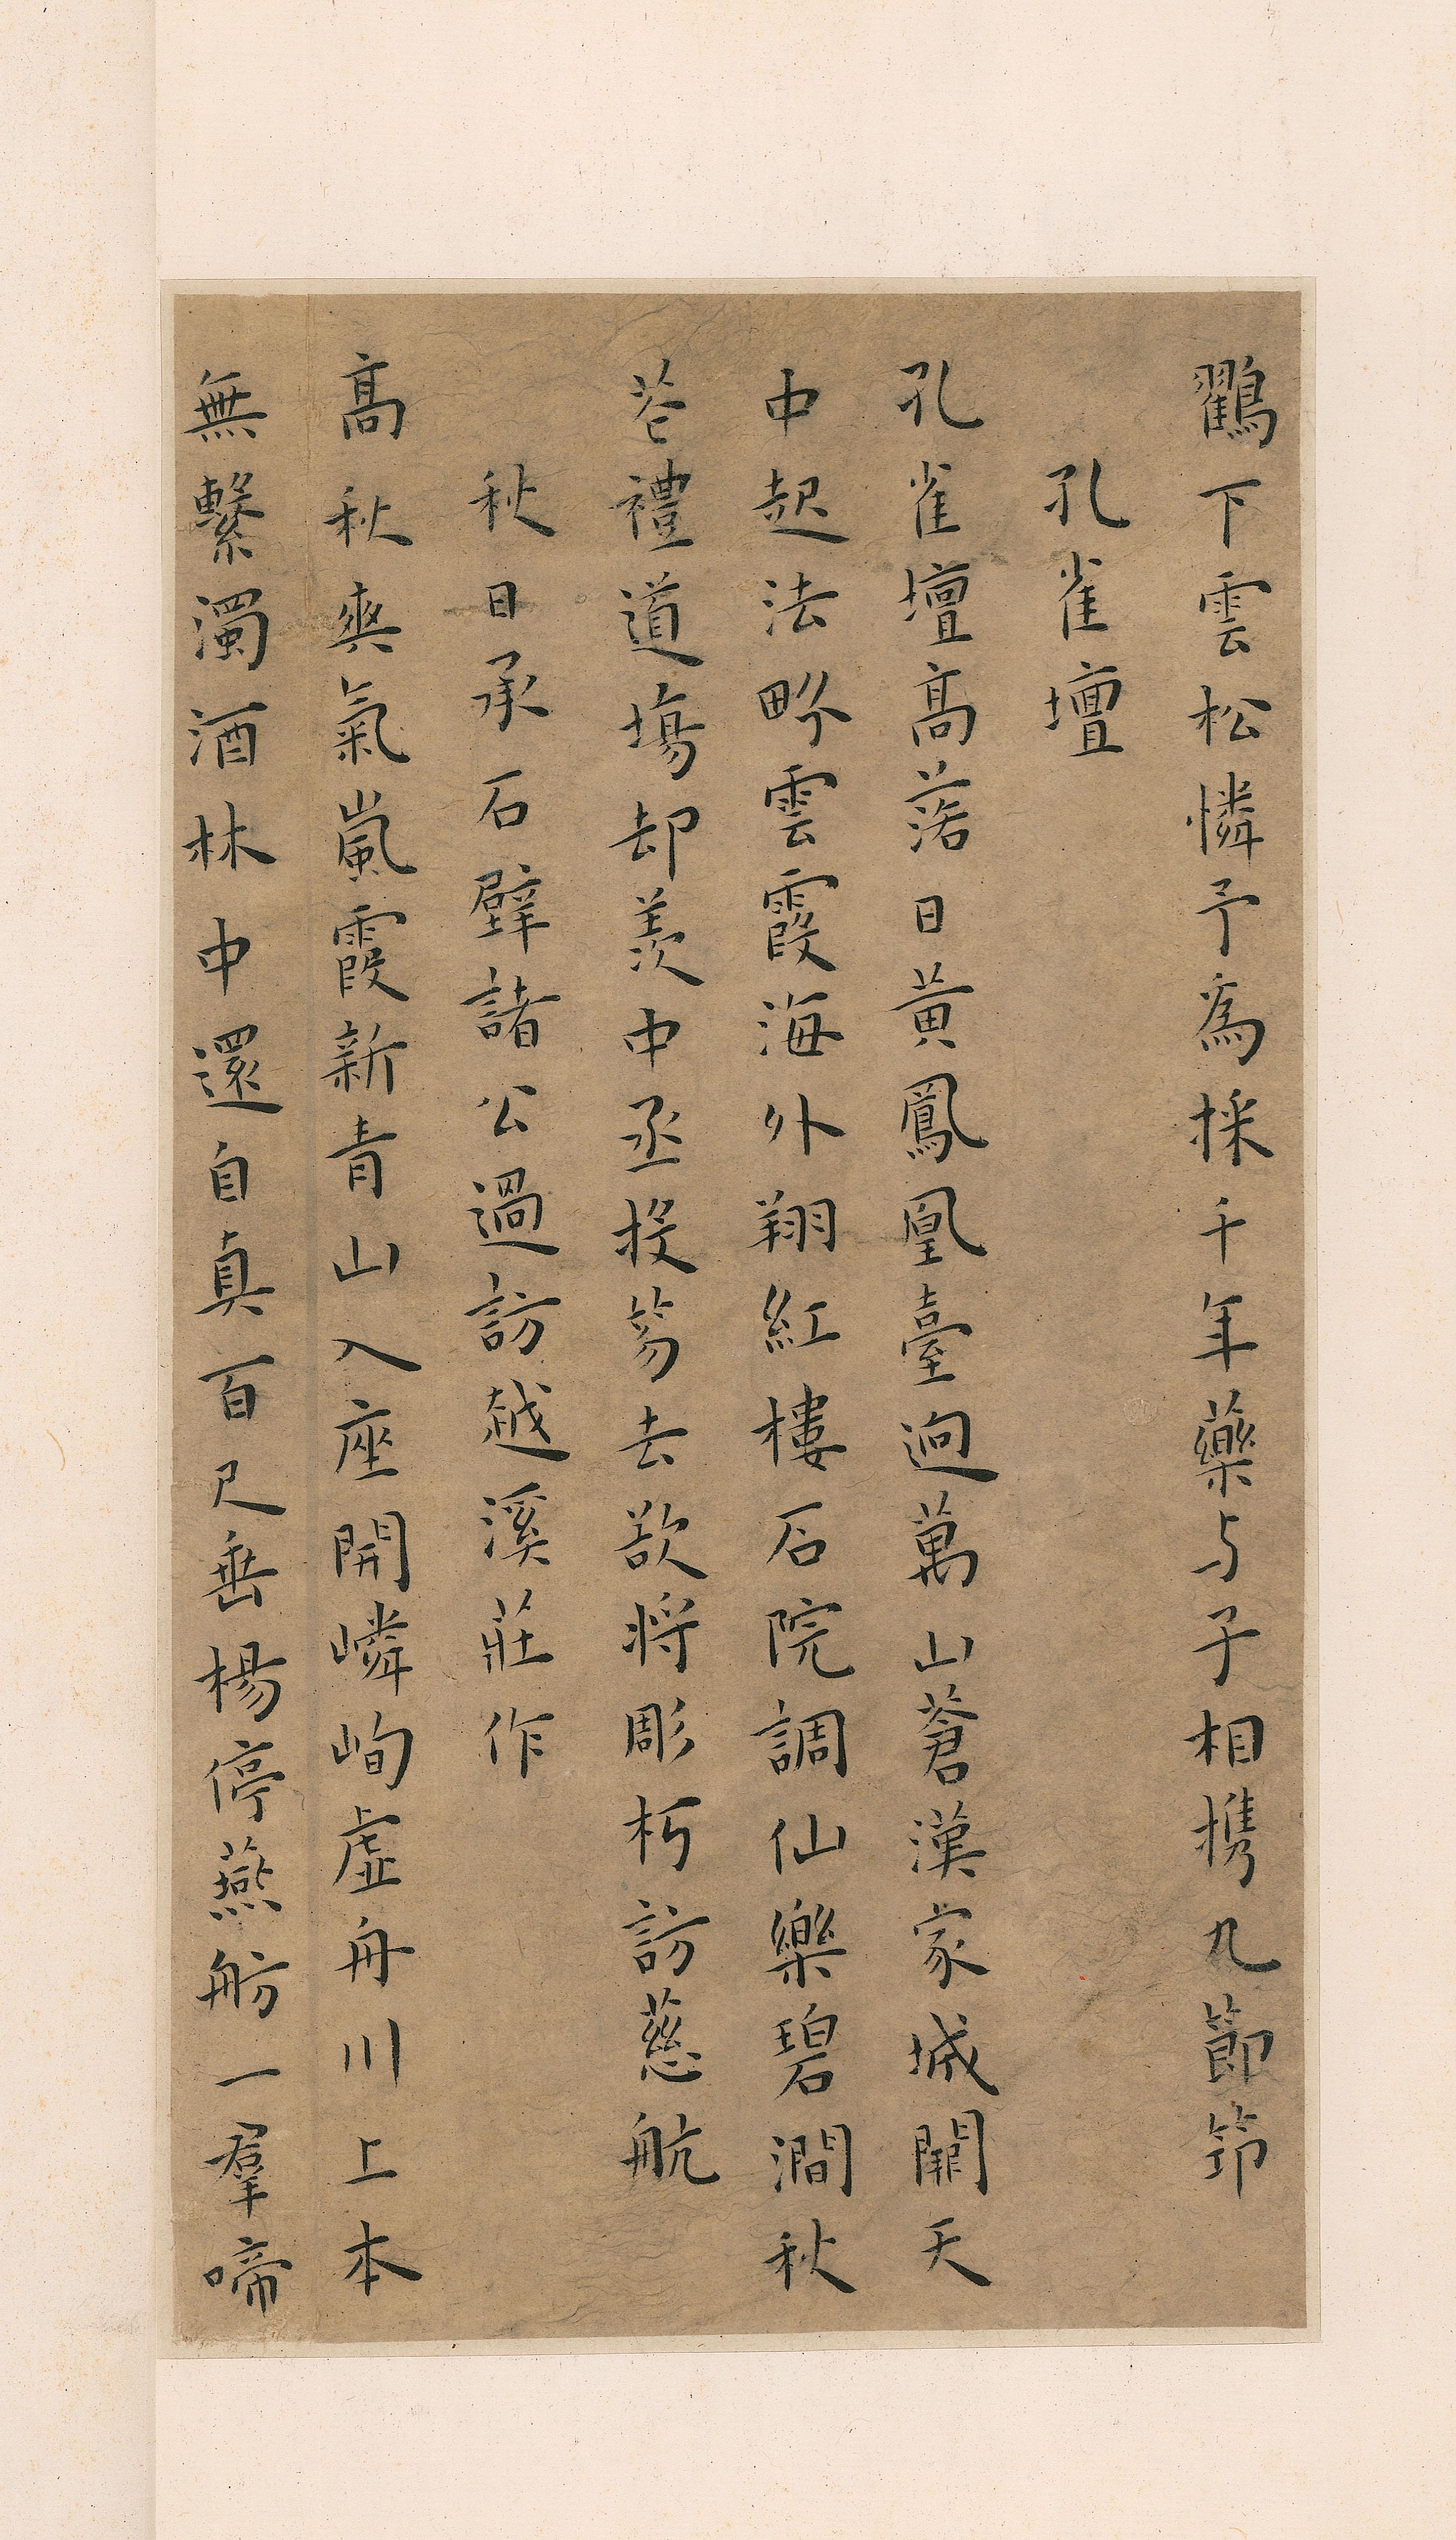 鸐下雲松憐予為採千年藥与子相攜九節笻
孔雀壇
孔雀壇高落日黃鳳凰臺迥萬山蒼漢家城闕天
中起法界雲霞海外翔紅樓石院調仙樂碧澗秋
苍禮道場却羨中丞投笏去欲将彫朽訪慈航
秋日承石壁諸公過訪越溪莊作
高秋爽氣嵐霞新青山入座開嶙峋虛舟川上本
無繫濁酒林中還自真百尺垂楊停燕舫一羣啼